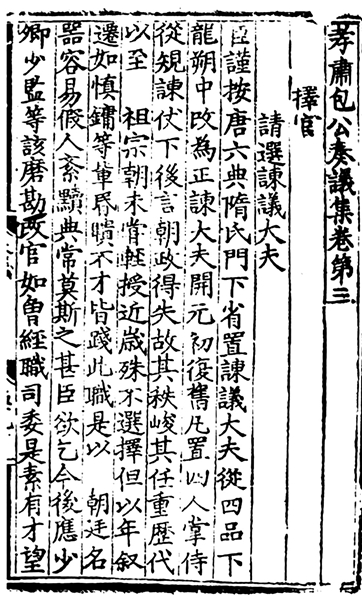 孝肅包公奏議集卷第三
擇官
請選諫議大夫
臣謹按唐六典隋氏門下省置諫議大夫從四品下
龍朔中改為正諫大夫開元初復舊凡置四人掌侍
從規諫伏下後言朝政得失故其秩峻其任重歷代
以至 祖宗朝未甞輕授近歲殊不選擇但以年叙
遷如慎鏞等軰昬聵不才皆踐此職是以 朝廷名
器容易假人紊黷典常莫斯之甚臣欲乞今後應少
卿少監等該磨勘改官如曾經職司委是素有才望